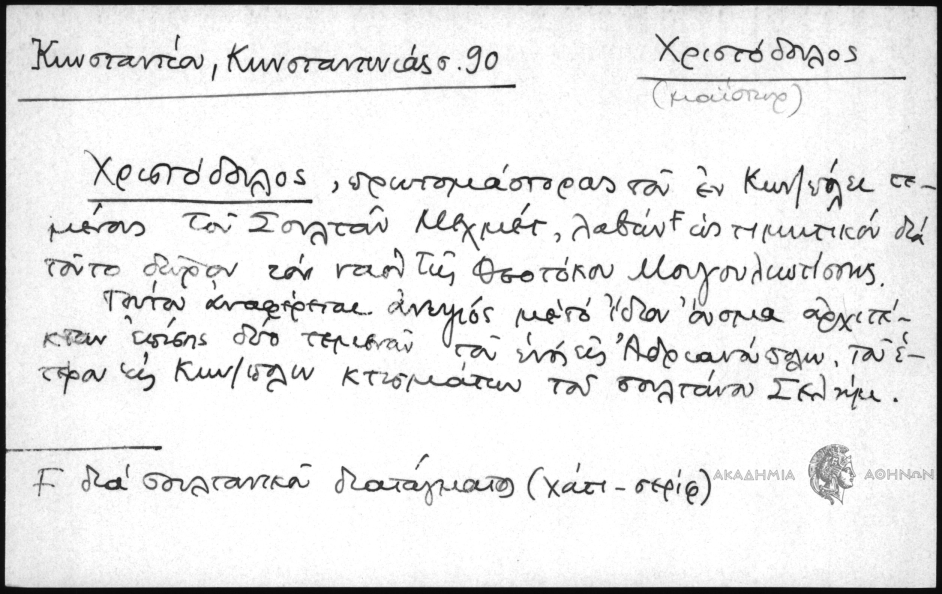 Κωνσταντίου, Κωνσταντινιάς σ. 90
Χριστόδουλος
(μαΐστωρ)
Χριστόδουλος, πρωτομάστορας τοῦ ἐν Κων/πόλει τε-
μένους τοῦ Σουλτὰν Μεχμέτ, λαβὼν F ὡς τιμητικὸν διὰ
τοῦτο δῶρον τὸν ναὸν τῆς Θεοτόκου Μουγουλιωτίσσης.
Τούτου ἀναφέρεται ἀνεψιός μὲ τὸ ἴδιον ὄνομα ἀρχιτέ-
κτων ἐπίσης δύο τεμενῶν τοῦ ἑνὸς εἰς Ἀδριανούπολιν, τοῦ ἑ-
τέρου εἰς Κων/πολιν κτισμάτων τοῦ σουλτάνου Σελήμ.
F διὰ σουλτανικοῦ διατάγματος (χάτι-σερίφ)
ΑΚΑΔΗΜΙΑ ΑΘΗΝΩΝ